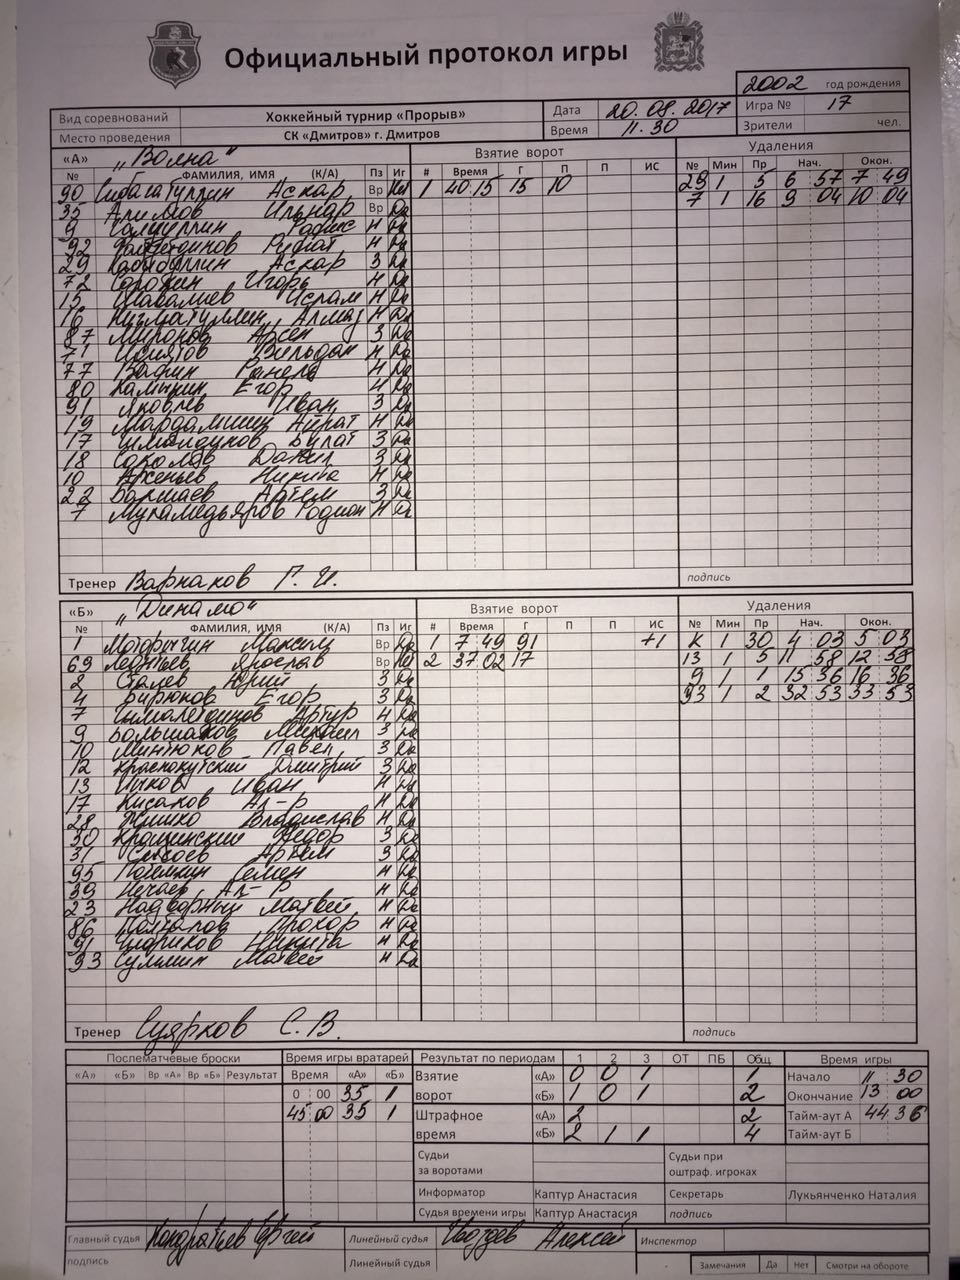 Официальный протокол игры
2002 год рождения
Вид соревнований Хоккейный турнир «Прорыв» Дата 20.08.2017 Игра № 17
Место проведения СК «Дмитров» г. Дмитров Время 11.30 Зрители чел.
«А» „Волна“ Взятие ворот Удаления
№ ФАМИЛИЯ, ИМЯ (К/А) Пз Иг # Время Г П П ИС № Мин Пр Нач. Окон.
90 Аскар Вр 1 40 15 15 10 29 1 5 6 57 7 49
35 Алимов Ильнар Вр Да 7 1 16 9 04 10 04
9 Н Да
92 Н Да
29 Аскар З Да
72 Сорокин Игорь Н Да
15 Ислам Н Да
16 Алмаз Н Да
87 Миронов Арсен З Да
71 Вильдан Н Да
77 Вафин Ранель Н Да
80 Камынин Егор Н Да
91 Яковлев Иван З Да
19 Мардамшин Айрат Н Да
17 Булат З Да
18 Соколов З Да
10 Арсеньев Никита Н Да
22 Баршаев Артем З Да
7 Мухамедьяров Родион Н Да
Тренер Варнаков Г. И. подпись
«Б» „Динамо“ Взятие ворот Удаления
№ ФАМИЛИЯ, ИМЯ (К/А) Пз Иг # Время Г П П ИС № Мин Пр Нач. Окон.
1 Моторыгин Максим Вр Да 1 7 49 91 +1 К 1 30 4 03 5 03
69 Леонтьев Ярослав Вр 2 37 02 17 13 1 5 11 58 12 58
2 Сталев Юрий З Да 9 1 1 15 36 16 36
4 Бирюков Егор З Да 93 1 2 32 53 33 53
7 Артур Н Да
9 Большаков Михаил З Да
10 Минтюков Павел З Да
12 Краснокутский Дмитрий З Да
13 Иван Н Да
17 Кисаков Ал-р Н Да
28 Владислав Н Да
30 Крощинский Федор З Да
31 Артем З Да
95 Потемкин Семен Н Да
39 Нечаев Ал-р Н Да
23 Надворный Матвей Н Да
86 Полтапов Прохор Н Да
91 Шориков Никита Н Да
93 Матвей Н Да
Тренер Суярков С. В. подпись
Послематчевые броски Время игры вратарей Результат по периодам 1 2 3 ОТ ПБ Общ Время игры
«А» «Б» Вр «А» Вр «Б» Результат Время «А» «Б» Взятие «А» 0 0 1 1 Начало 11 30
0 00 35 1 ворот «Б» 1 0 1 2 Окончание 13 00
45 00 35 1 Штрафное «А» 2 2 Тайм-аут А 44 36
время «Б» 2 1 1 4 Тайм-аут Б
Судьи за воротами Судьи при оштраф. игроках
Информатор Каптур Анастасия Секретарь Лукьянченко Наталия
Судья времени игры Каптур Анастасия подпись
Главный судья Кондратьев Сергей Линейный судья Алексей Инспектор
подпись Линейный судья Замечания Да Нет Смотри на обороте